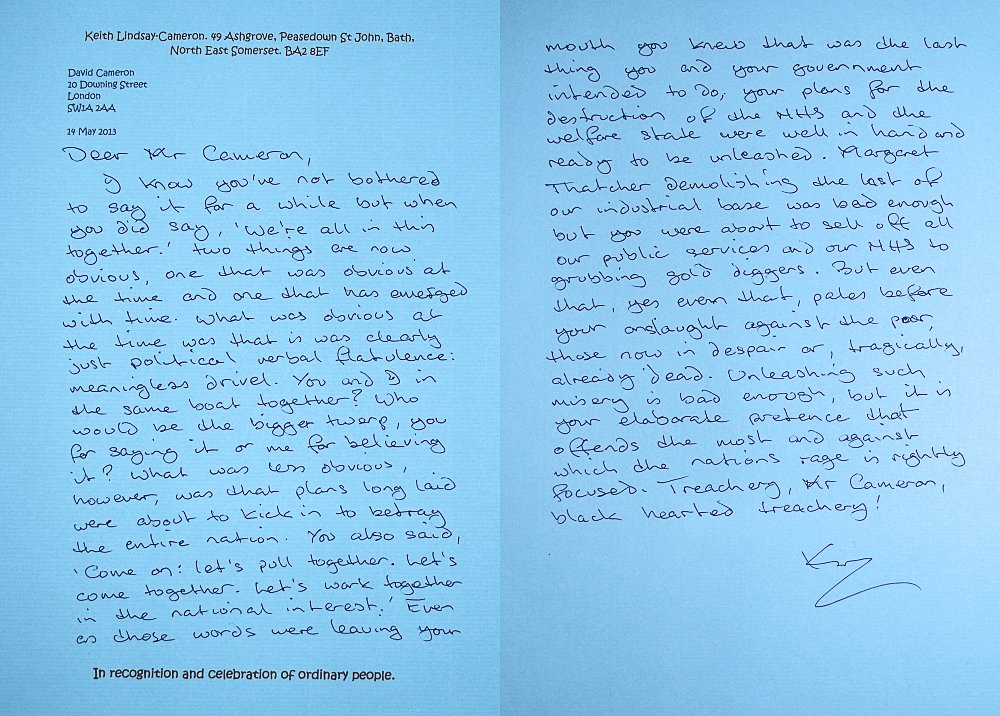 Keith Lindsay-Cameron. 49 Ashgrove, Peasedown St John, Bath,
North East Somerset. BA2 8EF
David Cameron
10 Downing Street
London
SW1A 2AA
14 May 2013
Dear Mr Cameron,
I know you've not bothered
to say it for a while but when
you did say, 'We're all in this
together.' two things are now
obvious, one that was obvious at
the time and one that has emerged
with time. What was obvious at
the time was that is was clearly
just political verbal flatulence:
meaningless drivel. You and I in
the same boat together? Who
would be the bigger twerp, you
for saying it or me for believing
it? What was less obvious,
however, was that plans long laid
were about to kick in to betray
the entire nation. You also said,
'Come on: let's pull together. Let's
come together. Let's work together
in the national interest.' Even
as those words were leaving your
In recognition and celebration of ordinary people.
mouth you knew that was the last
thing you and your government
intended to do, your plans for the
destruction of the NHS and the
welfare state were well in hand and
ready to be unleashed. Margaret
Thatcher demolishing the last of
our industrial base was bad enough
but you were about to sell off all
our public services and our NHS to
grubbing gold diggers. But even
that, yes even that, pales before
your onslaught against the poor,
those now in despair or, tragically,
already dead. Unleashing such
misery is bad enough, but it is
your elaborate pretence that
offends the most and against
which the nations rage is rightly
focused. Treachery, Mr Cameron,
black hearted treachery!